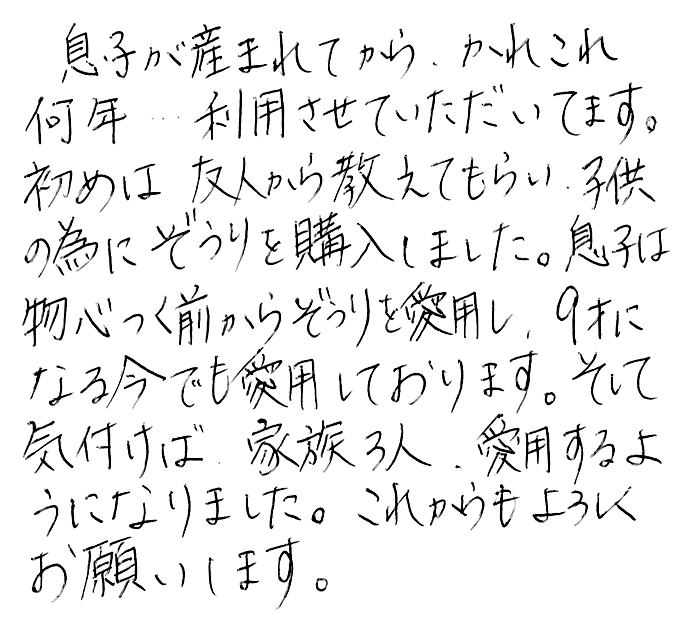 息子が産まれてから、かれこれ
何年…利用させていただいてます。
初めは友人から教えてもらい、子供
の為にぞうりを購入しました。息子は
物心つく前からぞうりを愛用し、9才に
なる今でも愛用しております。そして
気付けば、家族3人、愛用するよ
うになりました。これからもよろしく
お願いします。